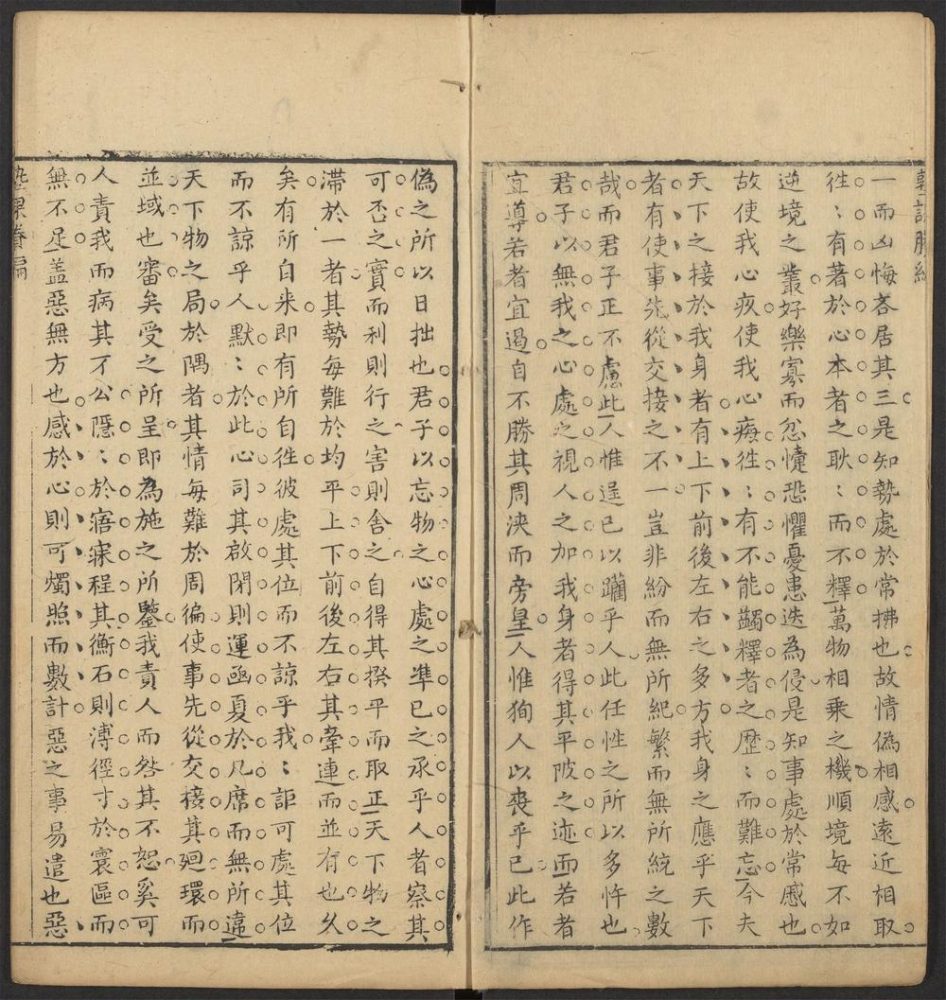 一而凶悔吝居其三是知勢處於常拂也故情偽相感遠近相取
徃〻有著於心本者之耿〻而不釋萬物相乘之機順境每不如
逆境之叢好樂寡而忿懥恐懼憂患迭為侵是知事處於常慼也
故使我心疚使我心痗徃〻有不能蠲釋者之歴〻而難忘今夫
天下之接於我身者有上下前後左右之多方我身之應乎天下
者有使事先從交接之不一豈非紛而無所紀繁而無所統之數
哉而君子正不慮此人惟逞己以躪乎人此任性之所以多忤也
君子以無我之心處之視人之加我身者得其平陂之迹而若者
宜導若者宜遏自不勝其周浹而旁皇人惟狥人以喪乎己此作
偽之所以日拙也君子以忘物之心處之準己之承乎人者察其
可否之實而利則行之害則舍之自得其揆平而取正天下物之
滯於一者其勢每難於均平上下前後左右其牽連而並有也久
矣有所自来即有所自徃彼處其位而不諒乎我〻詎可處其位
而不諒乎人默〻於此心司其啟閉則運函夏於几席而無所違
天下物之局於隅者其情每難於周徧使事先從交接其廻環而
並域也審矣受之所呈即為施之所鑒我責人而咎其不恕奚可
人責我而病其不公隱〻於寤寐程其衡石則溥徑寸於寰區而
無不足蓋惡無方也感於心則可燭照而數計惡之事易遣也惡